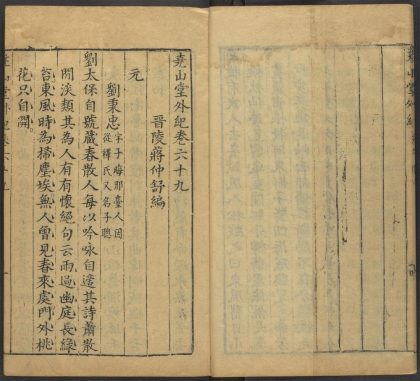 堯山堂外紀卷六十九
晉陵蔣仲舒編
元
劉秉忠 字子晦邢臺人因從釋氏又名子聰
劉太保自號藏春散人每以吟咏自遣其詩蕭散
閒淡類其為人有有懷絕句云雨過幽庭長綠
苔東風時為掃塵埃無人曾見春來處門外桃
花只自開。
堯山堂外紀卷六十九